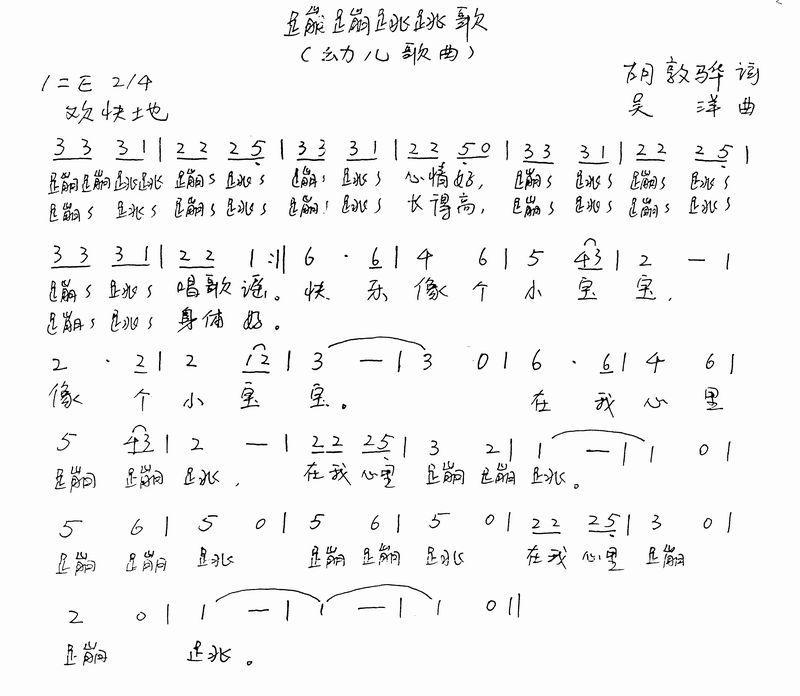 蹦蹦跳跳歌
(幼儿歌曲)
1=E 2/4
胡敦骅 词
欢快地
吴 洋 曲
3 3 3 1 | 2 2 2 5 | 3 3 3 1 | 2 2 5 0 | 3 3 3 1 | 2 2 2 5 |
蹦蹦跳跳 蹦〻跳〻 蹦〻跳〻 心情好, 蹦〻跳〻 蹦〻跳〻
蹦〻跳〻 蹦〻跳〻 蹦〻跳〻 长得高, 蹦〻跳〻 蹦〻跳〻
3 3 3 1 | 2 2 1 :‖ 6 · 6 | 4 6 | 5 43 | 2 — |
蹦〻跳〻 唱歌谣。快 乐 像 个 小 宝 宝,
蹦〻跳〻 身体好。
2 · 2 | 2 12 | 3 — | 3 0 | 6 · 6 | 4 6 |
像 个 小 宝 宝。 在 我 心 里
5 43 | 2 — | 22 25 | 3 2 | 1 — | 1 0 |
蹦 蹦 跳, 在我 心里 蹦 蹦 跳。
5 6 | 5 0 | 5 6 | 5 0 | 22 25 | 3 0 |
蹦 蹦 跳 蹦 蹦 跳 在我 心里 蹦
2 0 | 1 — | 1 — | 1 0 ‖
蹦 跳。